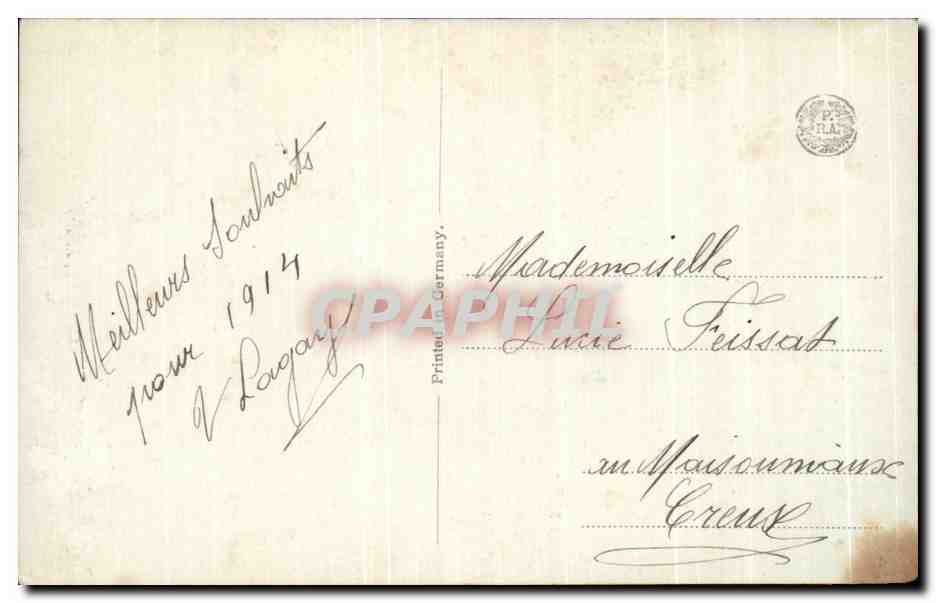 Meilleurs Souhaits
pour 1914
V Lagary
Printed in Germany.
P.
R.A.
CPAPHIL
Mademoiselle
Lucie Feissat
au Maisouniaux
Creux